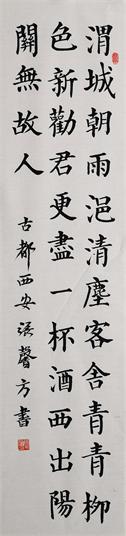 渭城朝雨浥清塵客舍青青柳
色新勸君更盡一杯酒西出陽
關無故人
古都西安 馨方書